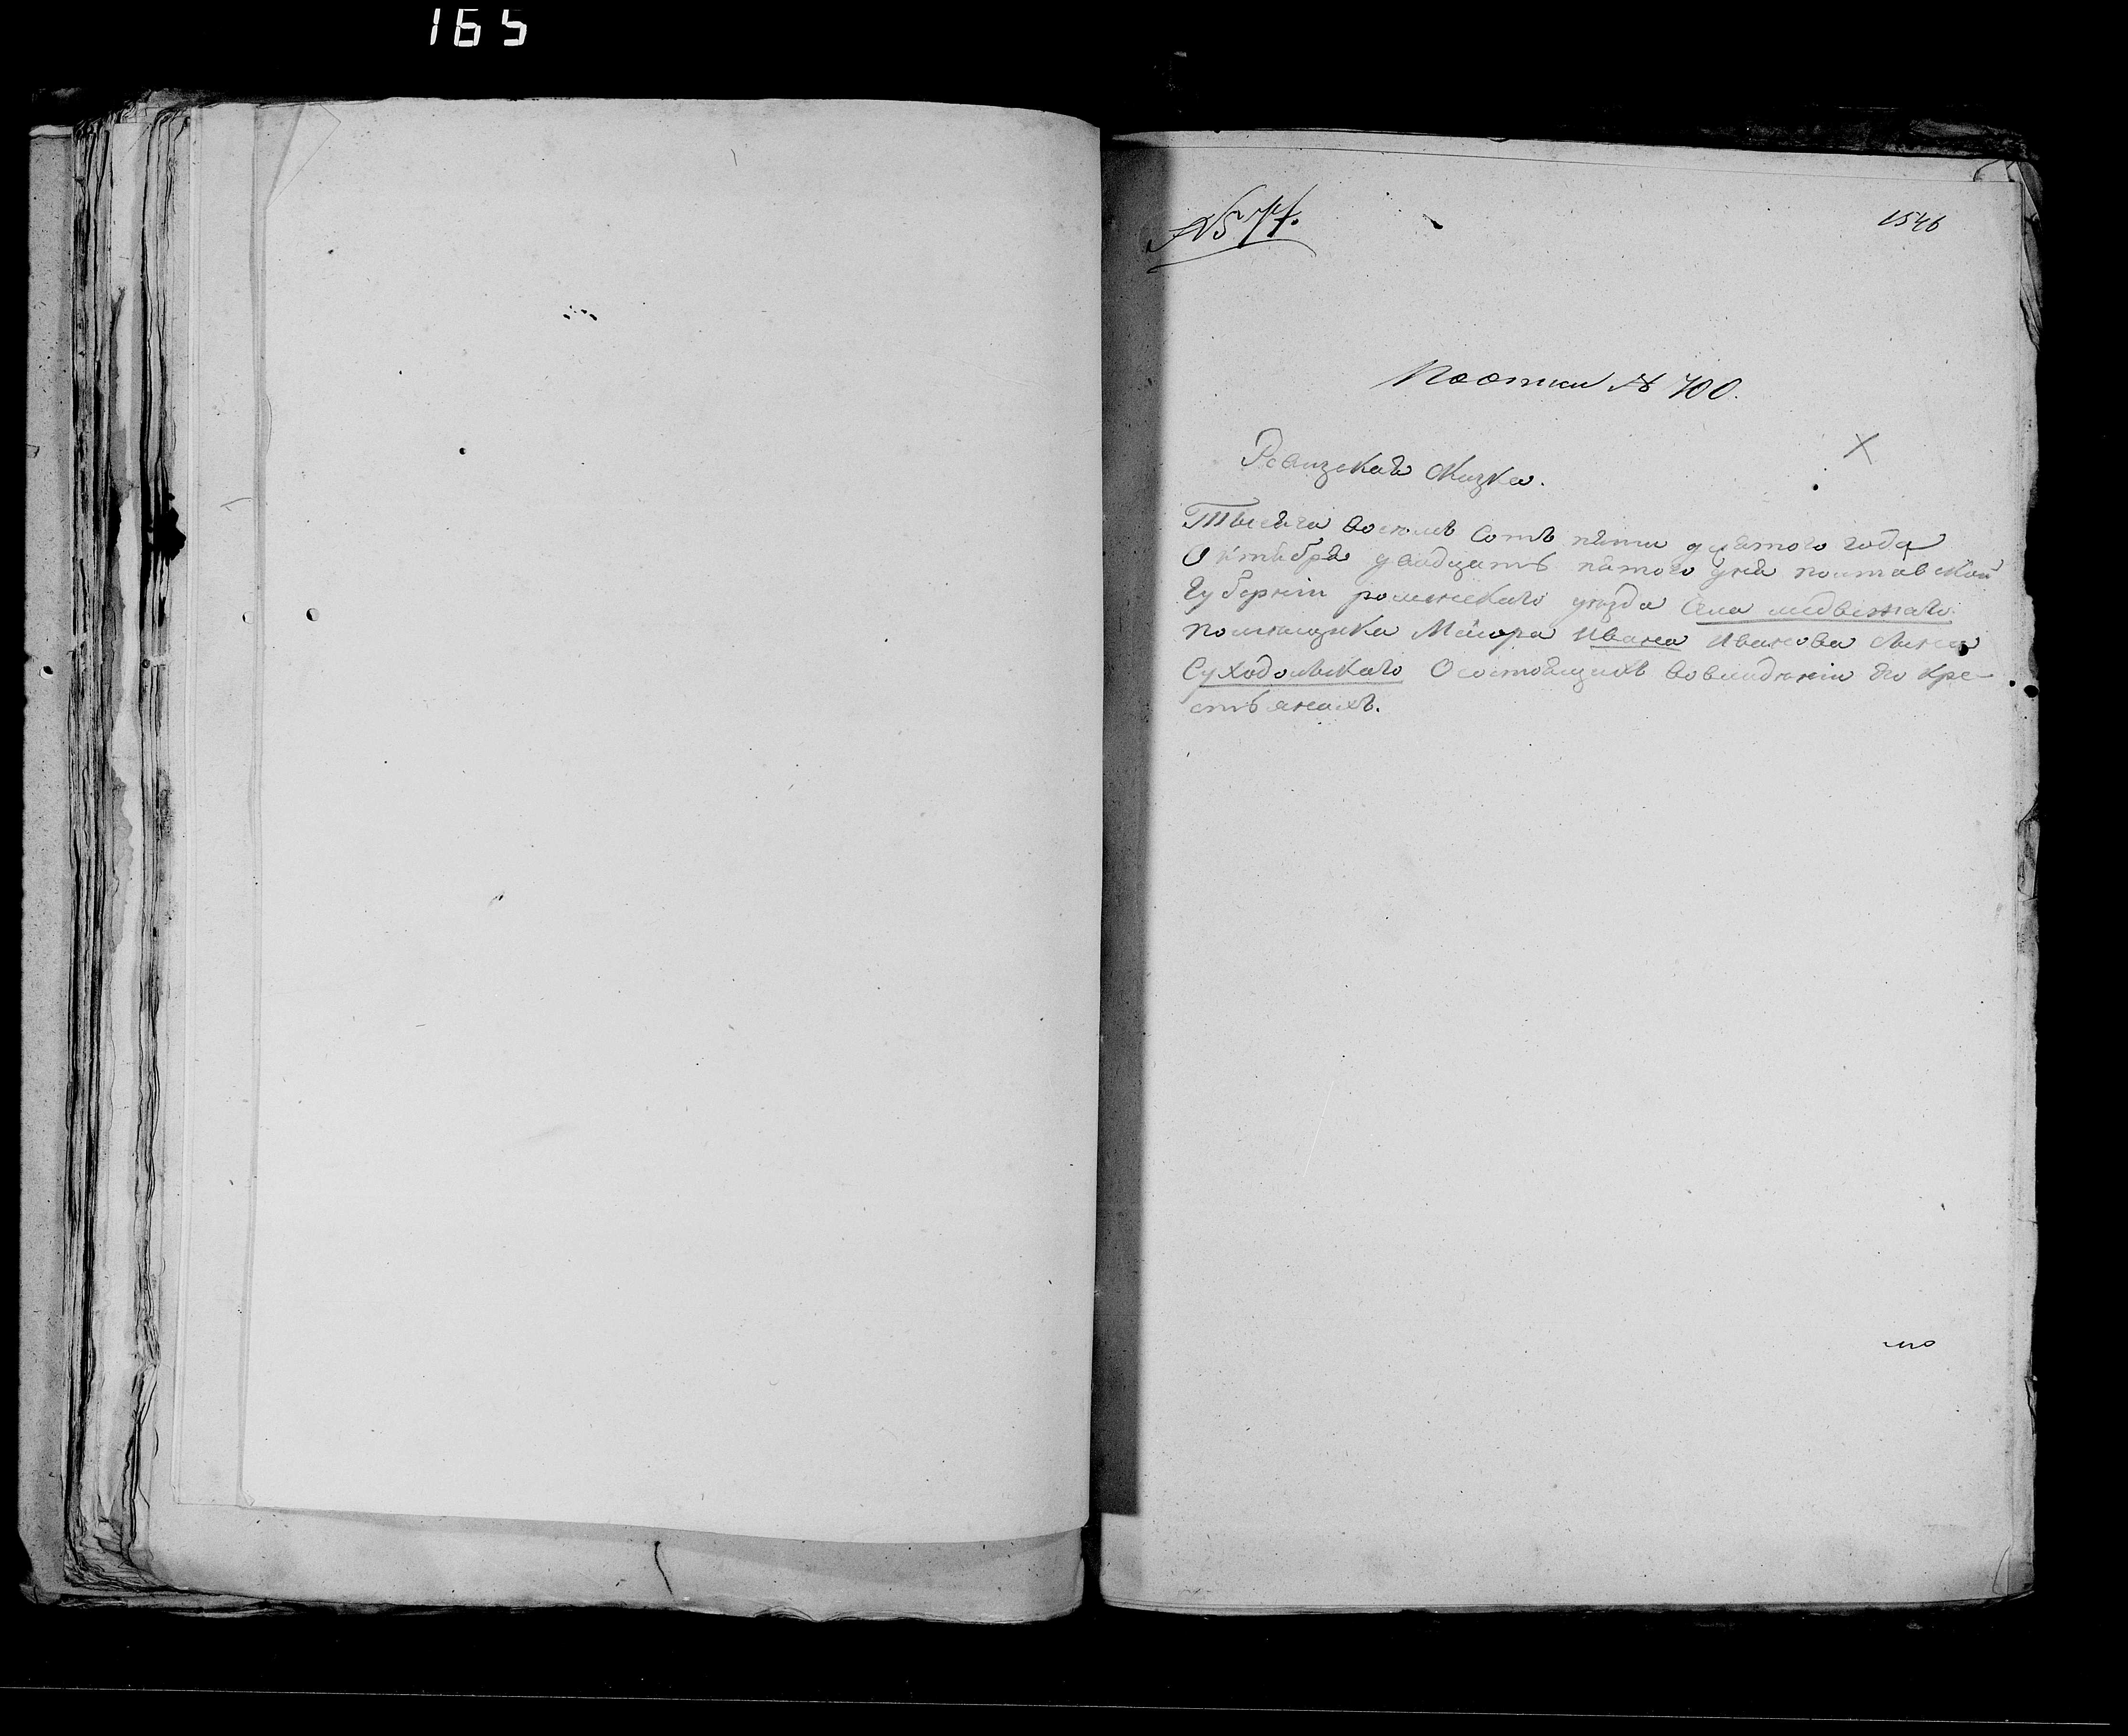 165
1546
По описи № 700.
Ревизская сказка.
Тысяча восемь сотъ пять десятого года
Октября двадцать пятого дня полтавской
Губерніи роменскаго уезда села медвежаго
помещика Маиора Ивана Иванова сына
Суходольскаго О состоящихъ вовладении его кре-
стьянахъ.